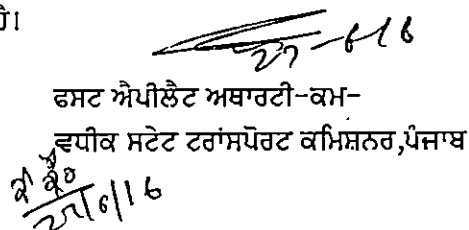 ਹੈ।
27-6-16
ਫਸਟ ਐਪੀਲੈਟ ਅਥਾਰਟੀ-ਕਮ-
ਵਧੀਕ ਸਟੇਟ ਟਰਾਂਸਪੋਰਟ ਕਮਿਸ਼ਨਰ,ਪੰਜਾਬ